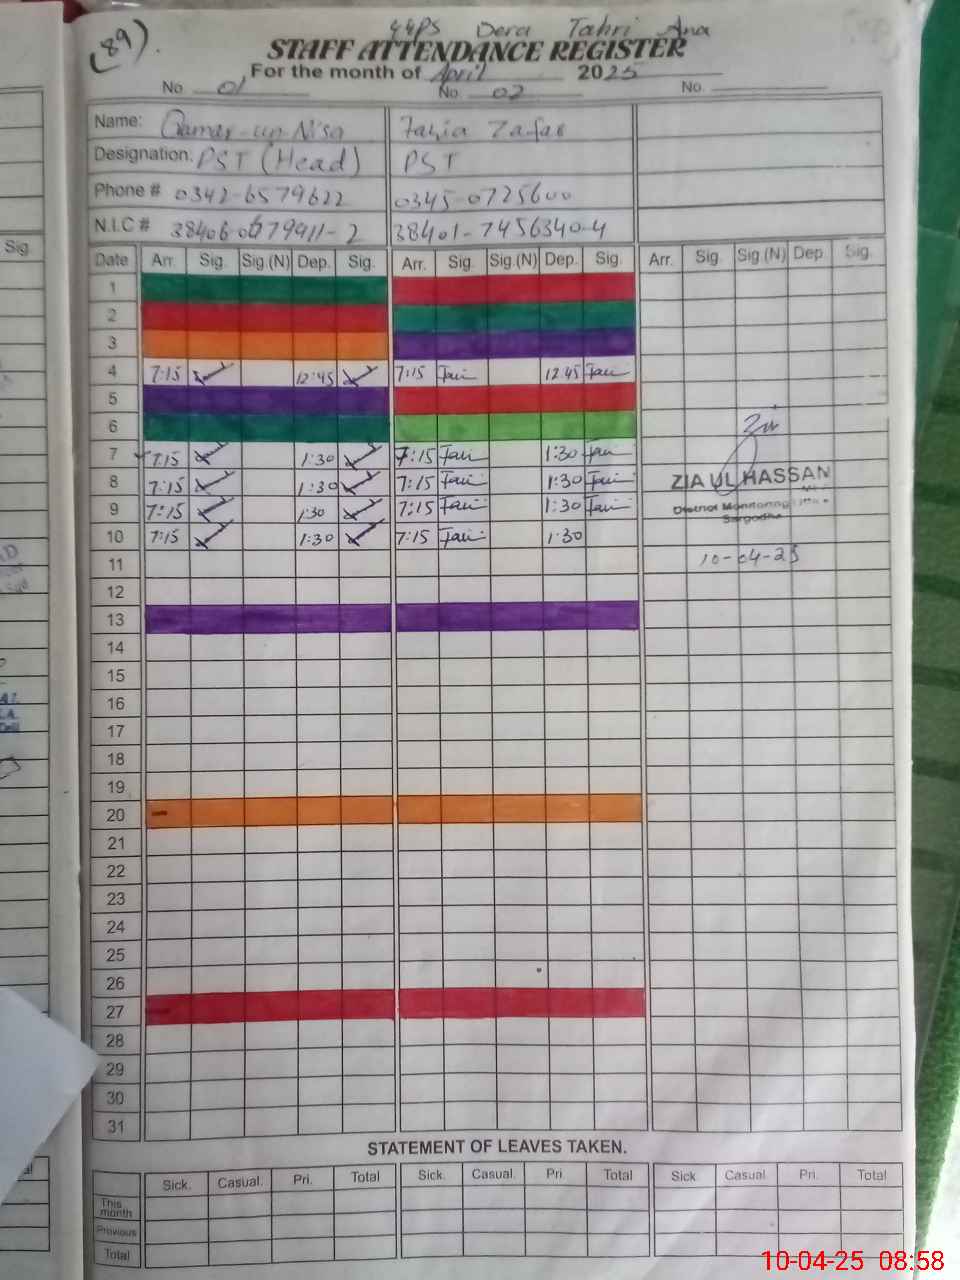 (89).
GGPS Dera Tahri Ana
STAFF ATTENDANCE REGISTER
For the month of April 2025
No 01 No 02 No.
Name: Qamar-un-Nisa Fazia Zafar
Designation: PST (Head) PST
Phone # 0342-6579622 0345-0725600
N.I.C # 38401-7456340-4
Sig
Date Arr. Sig. Sig.(N) Dep. Sig. Arr. Sig. Sig.(N) Dep. Sig. Arr. Sig. Sig.(N) Dep. Sig.
1
2
3
4 7:15 12:45 7:15 12:45
5
6
7 7:15 1:30 7:15 1:30
8 7:15 1:30 7:15 1:30
ZIA UL HASSAN
9 7:15 1:30 7:15 1:30
District Monitoring Officer
Sargodha
10 7:15 1:30 7:15 1:30
11 10-04-25
12
13
14
15
16
17
18
19
20
21
22
23
24
25
26
27
28
29
30
31
STATEMENT OF LEAVES TAKEN.
Sick. Casual. Pri. Total Sick. Casual. Pri. Total Sick. Casual Pri. Total
This month
Previous
Total
10-04-25 08:58